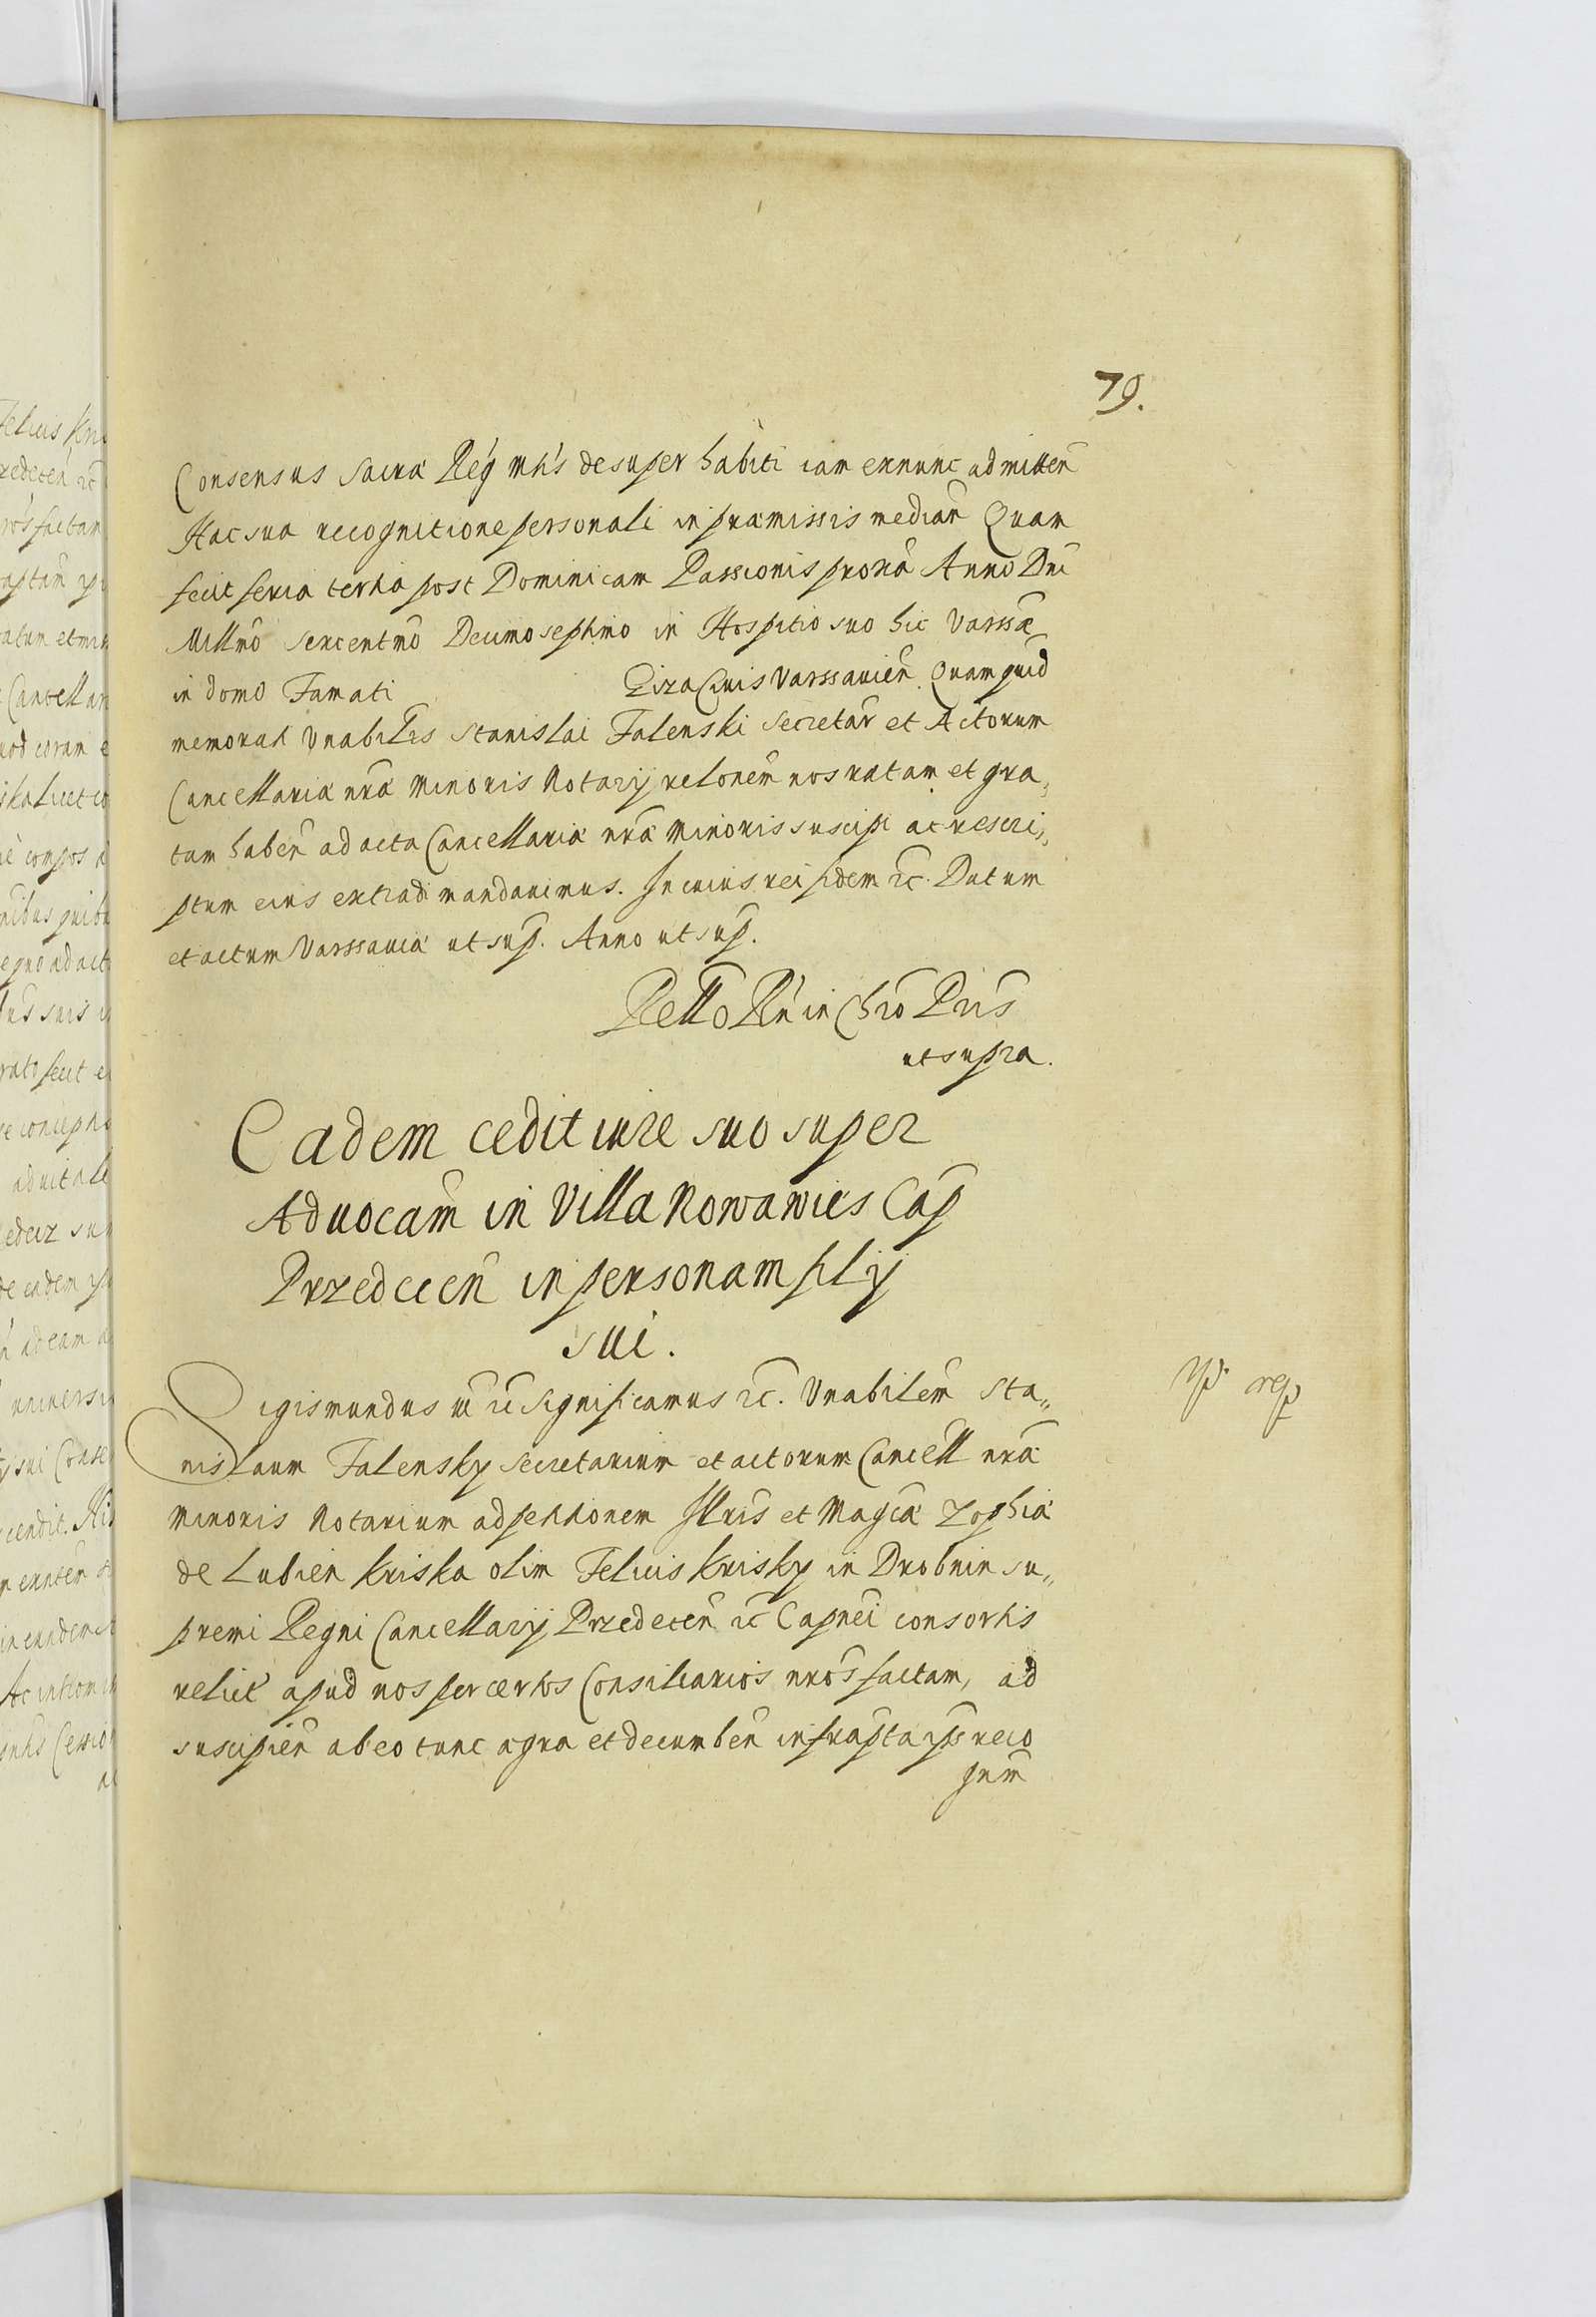 79.
Consensus Sacrá Rég Mt́is desuper habiti iam exnunc admitteñ
Hac sua recognitione personali in praemissis mediañ Quam
fecit feria tertia post Dominicam Passionis proxã Anno Dñi
Millm̃o sexcentm̃o Decimoseptimo in Hospitio suo hic Varsa͞e
in domo Famati Giza Civis Varssavień Quamquid͞
memorati Vnabilis Stanislai Falenski Secretar͞ et Actorum
Cancellariá nr͞á Minoris Notarÿ relone͞m nos ratam et gra„
tam habeñ ad acta Cancellariá nr͞á Minoris suscipi ac rescri„
ptum eius extradi mandavimus. In cuius rei fidem ꝛc͞. Datum
et actum Varssaviá ut sup͞. Anno ut sup͞.
Rello͞ Rń in Chr͞o Pr͞is
ut supra.
Eadem cedit iure suo super
Aduoca͞m in Villa Nowawies Cap͞
Przedeceń in personam filÿ
sui.
Sigismundus III͞ ꝛc͞ Significamus ꝛc͞. Vnabile͞m Sta„
nislaum Falensky Secretarium et actorum Cance͞ll nr͞á
Minoris Notarium ad petitionem Illr͞is et Mag͞cá Zophiá
de Lubień Kriska olim Felicis Krisky in Drobnin su„
premi Regni Cancellarÿ Przedeceń ꝛc͞ Cap͞nei consortis
relict́ apud nos per certos Consiliarios nro͞s factam, ad
suscipień ab eo tunc agra et decumbeñ infrap͞ta ips͞ reco
gnem͞